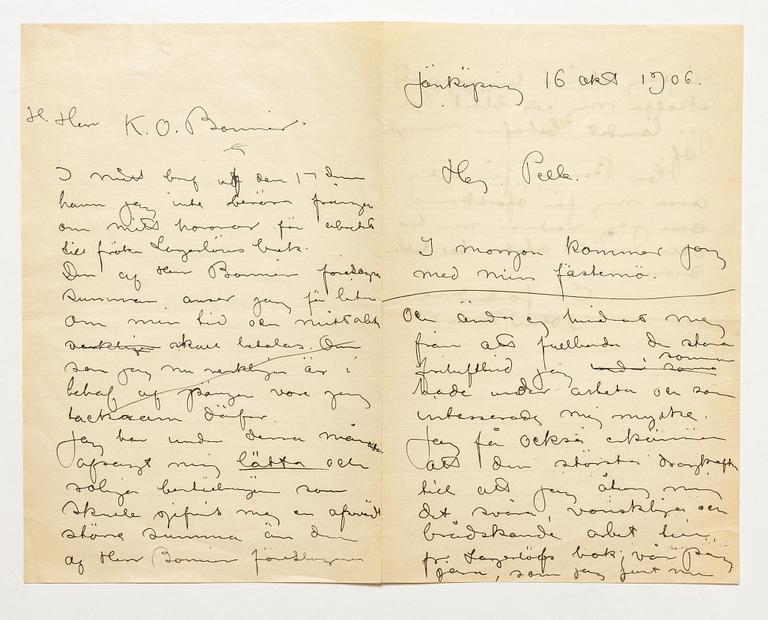 H. Herr K. O. Bonnier.
I mitt bref af den 17 dennes
hann jag inte beröra frågan
om mitt honorar för arbetet
till fröken Lagerlöfs bok.
Den af Herr Bonnier föreslagna
summan anser jag för liten
om min tid och mitt arbete
verkligen skall betalas. Om
som jag nu verkligen är i
behof af pengar vore jag
tacksam därför.
Jag har under denna månad
afsagt mig lätta och
roliga beställningar som
skulle gifvit mig en afsevärdt
större summa än den
af Herr Bonnier föreslagna
Jönköping 16 okt 1906.
Hej Pelle.
I morgon kommer jag
med min fästemö.
och ändå ej hindrat mig
från att fullborda de stora
friluftsbild jag som
både under arbeta och som
intresserade mig mycket.
Jag får också erkänna
att den största dragkraften
till att jag åtog mig
det svåra, vanskliga och
brådskande arbetet
för Lagerlöfs bok, var pengarna, som jag just nu